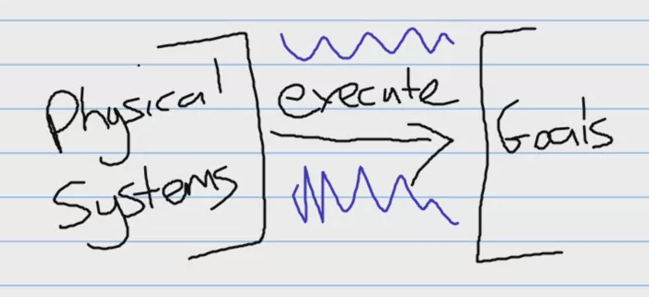 Physical
Systems
execute
Goals